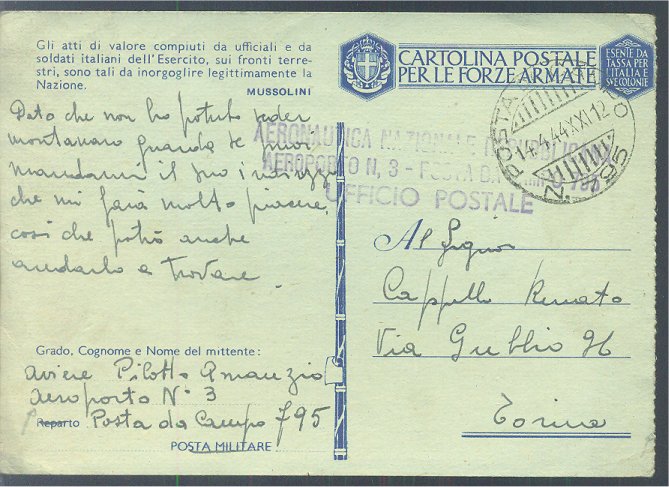 Gli atti di valore compiuti da ufficiali e da
soldati italiani dell'Esercito, sui fronti terre-
stri, sono tali da inorgoglire legittimamente la
Nazione.
MUSSOLINI
CARTOLINA POSTALE
PER LE FORZE ARMATE
ESENTE DA
TASSA PER
L'ITALIA E
SUE COLONIE
Dato che non ho potuto veder
montanaro guarda se puoi
mandarmi il suo indirizzo
che mi farà molto piacere,
così che potrò anche
andarlo a trovare.
AERONAUTICA NAZIONALE REPUBBLICANA
AEROPORTO N. 3 - POSTA DA CAMPO 795
UFFICIO POSTALE
POSTA
14.4.44.XXI.12
N. 795
Al Signor
Cappello Renato
Via Gubbio
Torino
Grado, Cognome e Nome del mittente:
Aviere Pilotto
Aeroporto N° 3
Reparto Posta da Campo 795
POSTA MILITARE